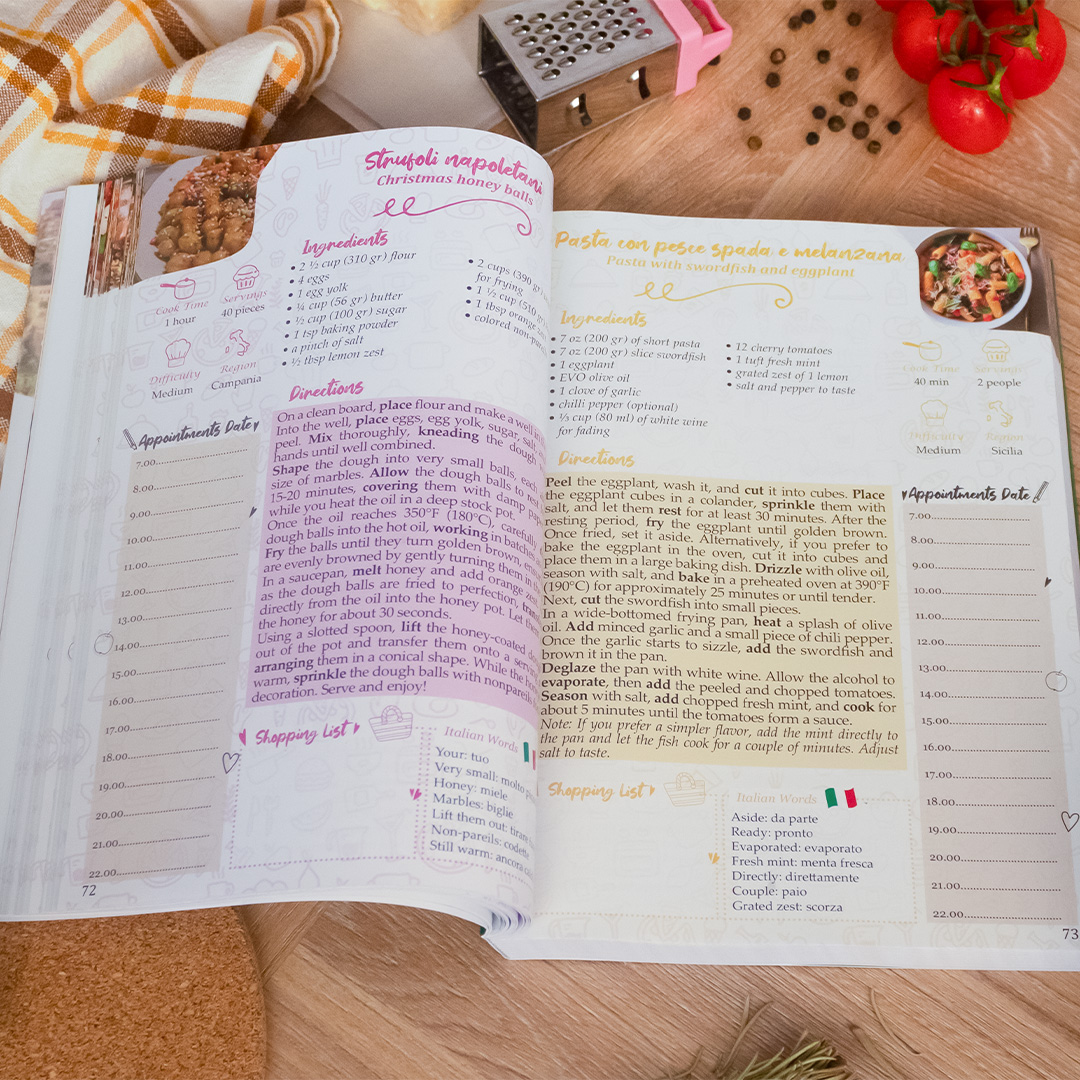 Strufoli napoletani
Christmas honey balls
Cook Time
1 hour
Servings
40 pieces
Difficulty
Medium
Region
Campania
Ingredients
• 2 ½ cup (310 gr) flour
• 4 eggs
• 1 egg yolk
• ¼ cup (56 gr) butter
• ½ cup (100 gr) sugar
• 1 tsp baking powder
• a pinch of salt
• ½ tbsp lemon zest
• 2 cups (390
for frying
• 1 ½ cup (510
• 1 tbsp orange
• colored non-par
Directions
On a clean board, place flour and make a well in
Into the well, place eggs, egg yolk, sugar, salt,
peel. Mix thoroughly, kneading the dough
hands until well combined.
Shape the dough into very small balls, each
size of marbles. Allow the dough balls to rest
15-20 minutes, covering them with damp pape
while you heat the oil in a deep stock pot.
Once the oil reaches 350°F (180°C), carefully
dough balls into the hot oil, working in batches
Fry the balls until they turn golden brown,
are evenly browned by gently turning them in th
In a saucepan, melt honey and add orange zest
as the dough balls are fried to perfection,
directly from the oil into the honey pot. Let them
the honey for about 30 seconds.
Using a slotted spoon, lift the honey-coated d
out of the pot and transfer them onto a
arranging them in a conical shape. While the ho
warm, sprinkle the dough balls with nonpareils
decoration. Serve and enjoy!
Appointments Date
7.00
8.00
9.00
10.00
11.00
12.00
13.00
14.00
15.00
16.00
17.00
18.00
19.00
20.00
21.00
22.00
Shopping List
Italian Words
Your: tuo
Very small: molto p
Honey: miele
Marbles: biglie
Lift them out: tirare
Non-pareils: codette
Still warm: ancora ca
72
Pasta con pesce spada e melanzana
Pasta with swordfish and eggplant
Ingredients
• 7 oz (200 gr) of short pasta
• 7 oz (200 gr) slice swordfish
• 1 eggplant
• EVO olive oil
• 1 clove of garlic
• chilli pepper (optional)
• ⅓ cup (80 ml) of white wine
for fading
• 12 cherry tomatoes
• 1 tuft fresh mint
• grated zest of 1 lemon
• salt and pepper to taste
Cook Time
40 min
Servings
2 people
Difficulty
Medium
Region
Sicilia
Directions
Peel the eggplant, wash it, and cut it into cubes. Place
the eggplant cubes in a colander, sprinkle them with
salt, and let them rest for at least 30 minutes. After the
resting period, fry the eggplant until golden brown.
Once fried, set it aside. Alternatively, if you prefer to
bake the eggplant in the oven, cut it into cubes and
place them in a large baking dish. Drizzle with olive oil,
season with salt, and bake in a preheated oven at 390°F
(190°C) for approximately 25 minutes or until tender.
Next, cut the swordfish into small pieces.
In a wide-bottomed frying pan, heat a splash of olive
oil. Add minced garlic and a small piece of chili pepper.
Once the garlic starts to sizzle, add the swordfish and
brown it in the pan.
Deglaze the pan with white wine. Allow the alcohol to
evaporate, then add the peeled and chopped tomatoes.
Season with salt, add chopped fresh mint, and cook for
about 5 minutes until the tomatoes form a sauce.
Note: If you prefer a simpler flavor, add the mint directly to
the pan and let the fish cook for a couple of minutes. Adjust
salt to taste.
Appointments Date
7.00
8.00
9.00
10.00
11.00
12.00
13.00
14.00
15.00
16.00
17.00
18.00
19.00
20.00
21.00
22.00
Shopping List
Italian Words
Aside: da parte
Ready: pronto
Evaporated: evaporato
Fresh mint: menta fresca
Directly: direttamente
Couple: paio
Grated zest: scorza
73